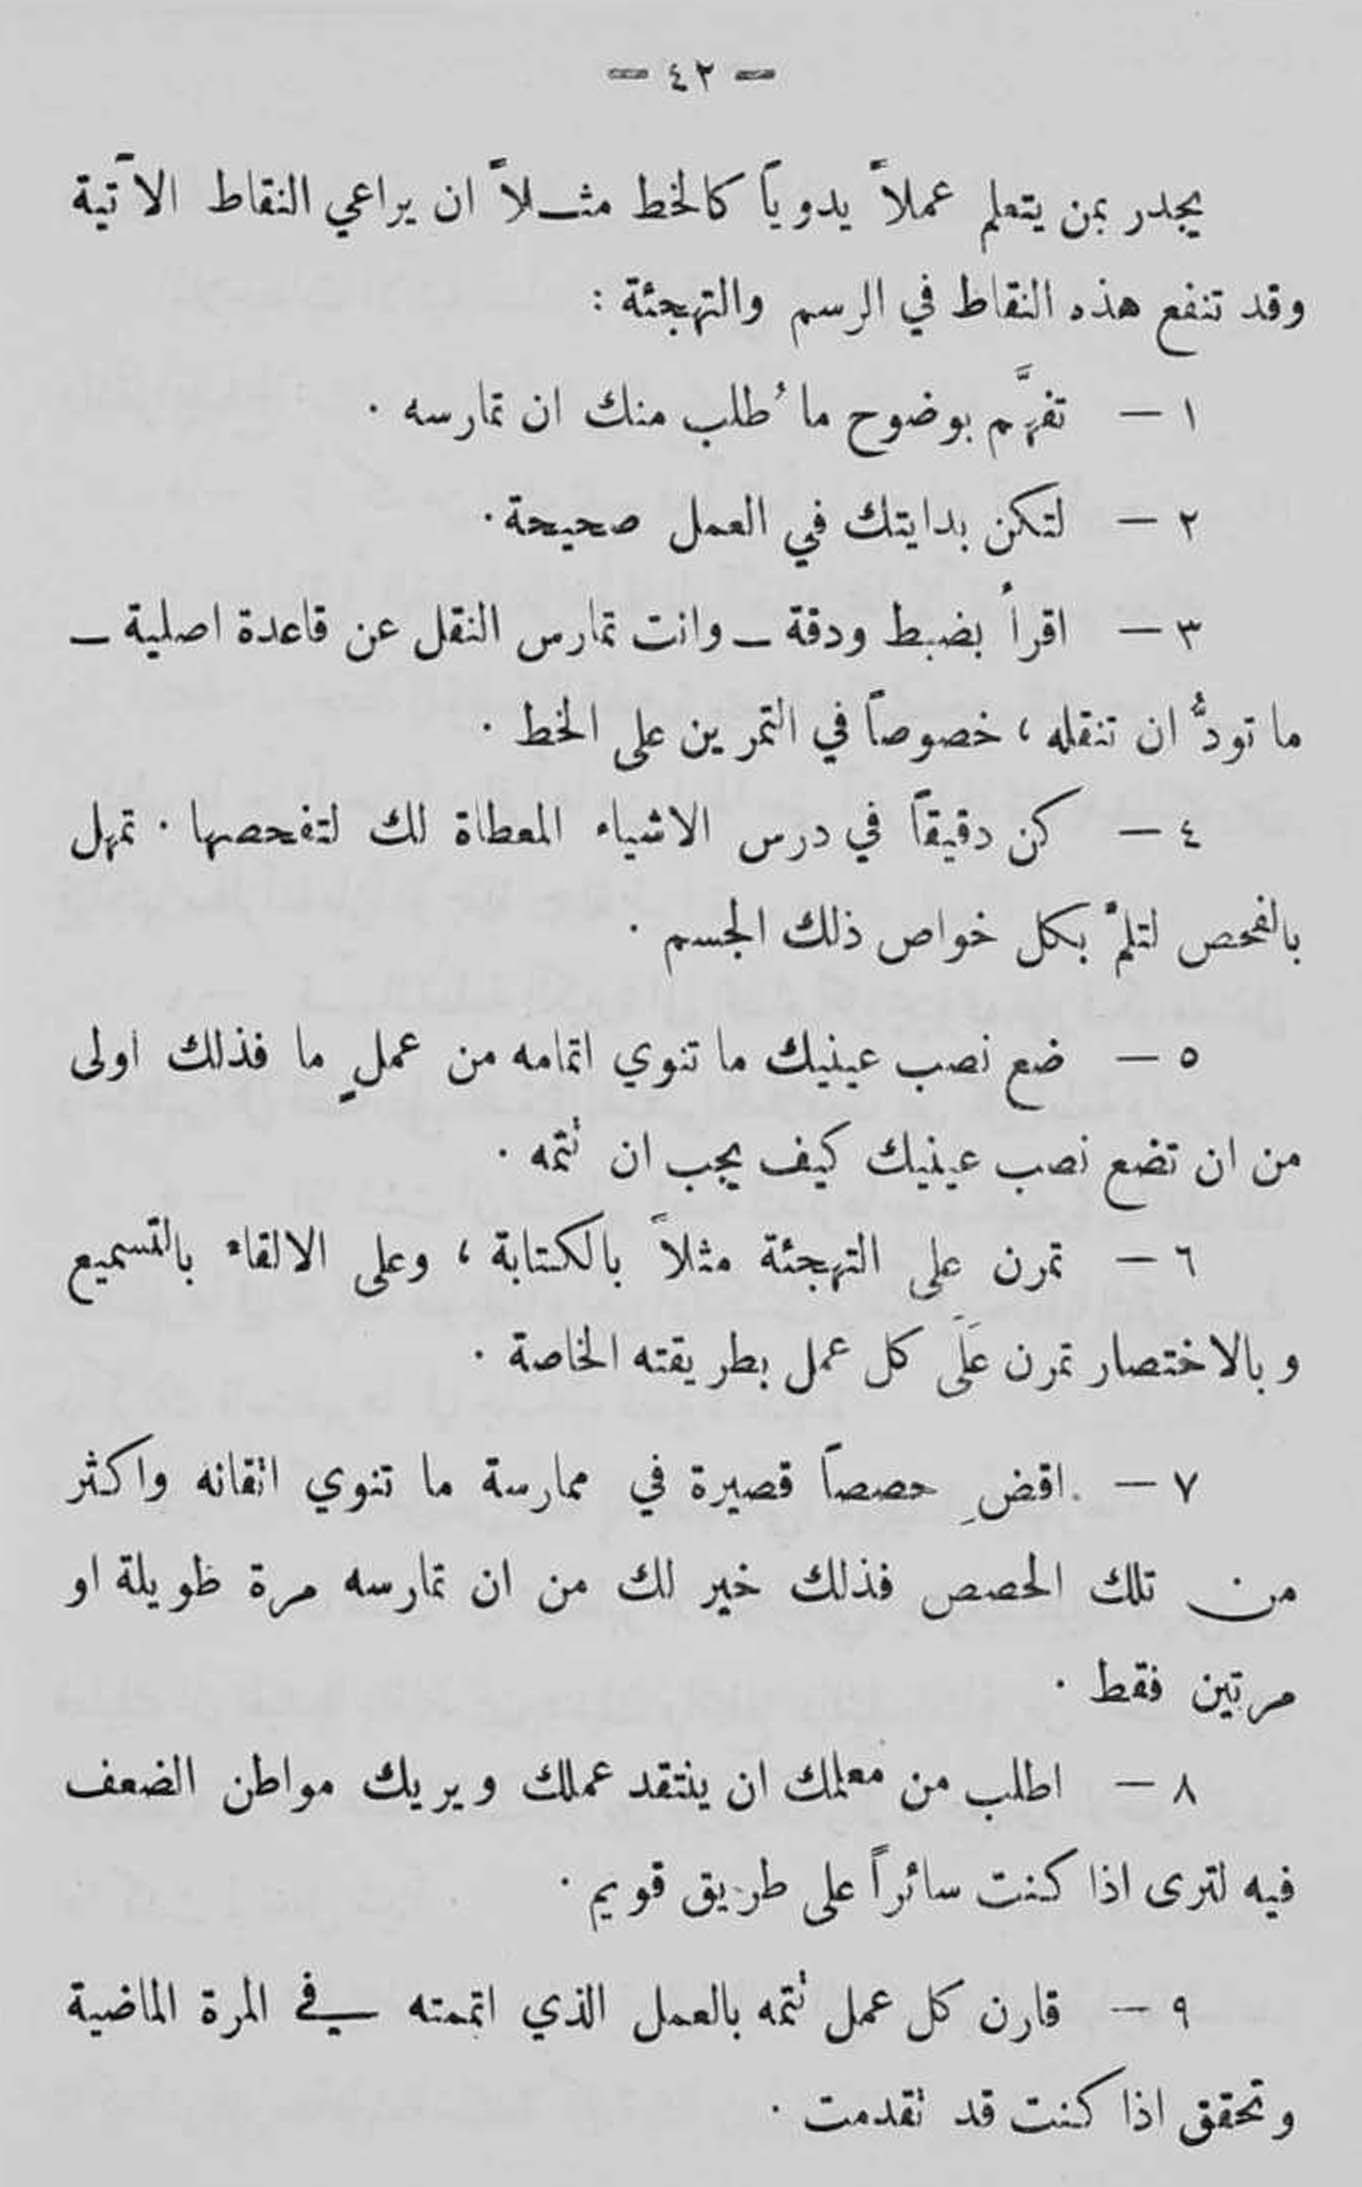 — ٤٢ —
يجدر بمن يتعلم عملاً يدوياً كالخط مثـلاً ان يراعي النقاط الآتية
وقد تنفع هذه النقاط في الرسم والتهجئة :
١ — تفهَّم بوضوح ما طُلب منك ان تمارسه ٠
٢ — لتكن بدايتك في العمل صحيحة ٠
٣ — اقرأ بضبط ودقة ــ وانت تمارس النقل عن قاعدة اصلية ــ
ما تودُّ ان تنقله ، خصوصاً في التمرين على الخط ٠
٤ — كن دقيقاً في درس الاشياء المعطاة لك لتفحصها ٠ تمهل
بالفحص لتلمَّ بكل خواص ذلك الجسم ٠
٥ — ضع نصب عينيك ما تنوي اتمامه من عملٍ ما فذلك اولى
من ان تضع نصب عينيك كيف يجب ان تتمه ٠
٦ — تمرن على التهجئة مثلاً بالكتابة ، وعلى الالقاء بالتسميع
وبالاختصار تمرن عَلَى كل عمل بطريقته الخاصة ٠
٧ — اقضِ حصصاً قصيرة في ممارسة ما تنوي اتقانه واكثر
من تلك الحصص فذلك خير لك من ان تمارسه مرة طويلة او
مرتين فقط ٠
٨ — اطلب من معلمك ان ينتقد عملك ويريك مواطن الضعف
فيه لترى اذا كنت سائراً على طريق قويم ٠
٩ — قارن كل عمل تتمه بالعمل الذي اتممته في المرة الماضية
وتحقق اذا كنت قد تقدمت ٠